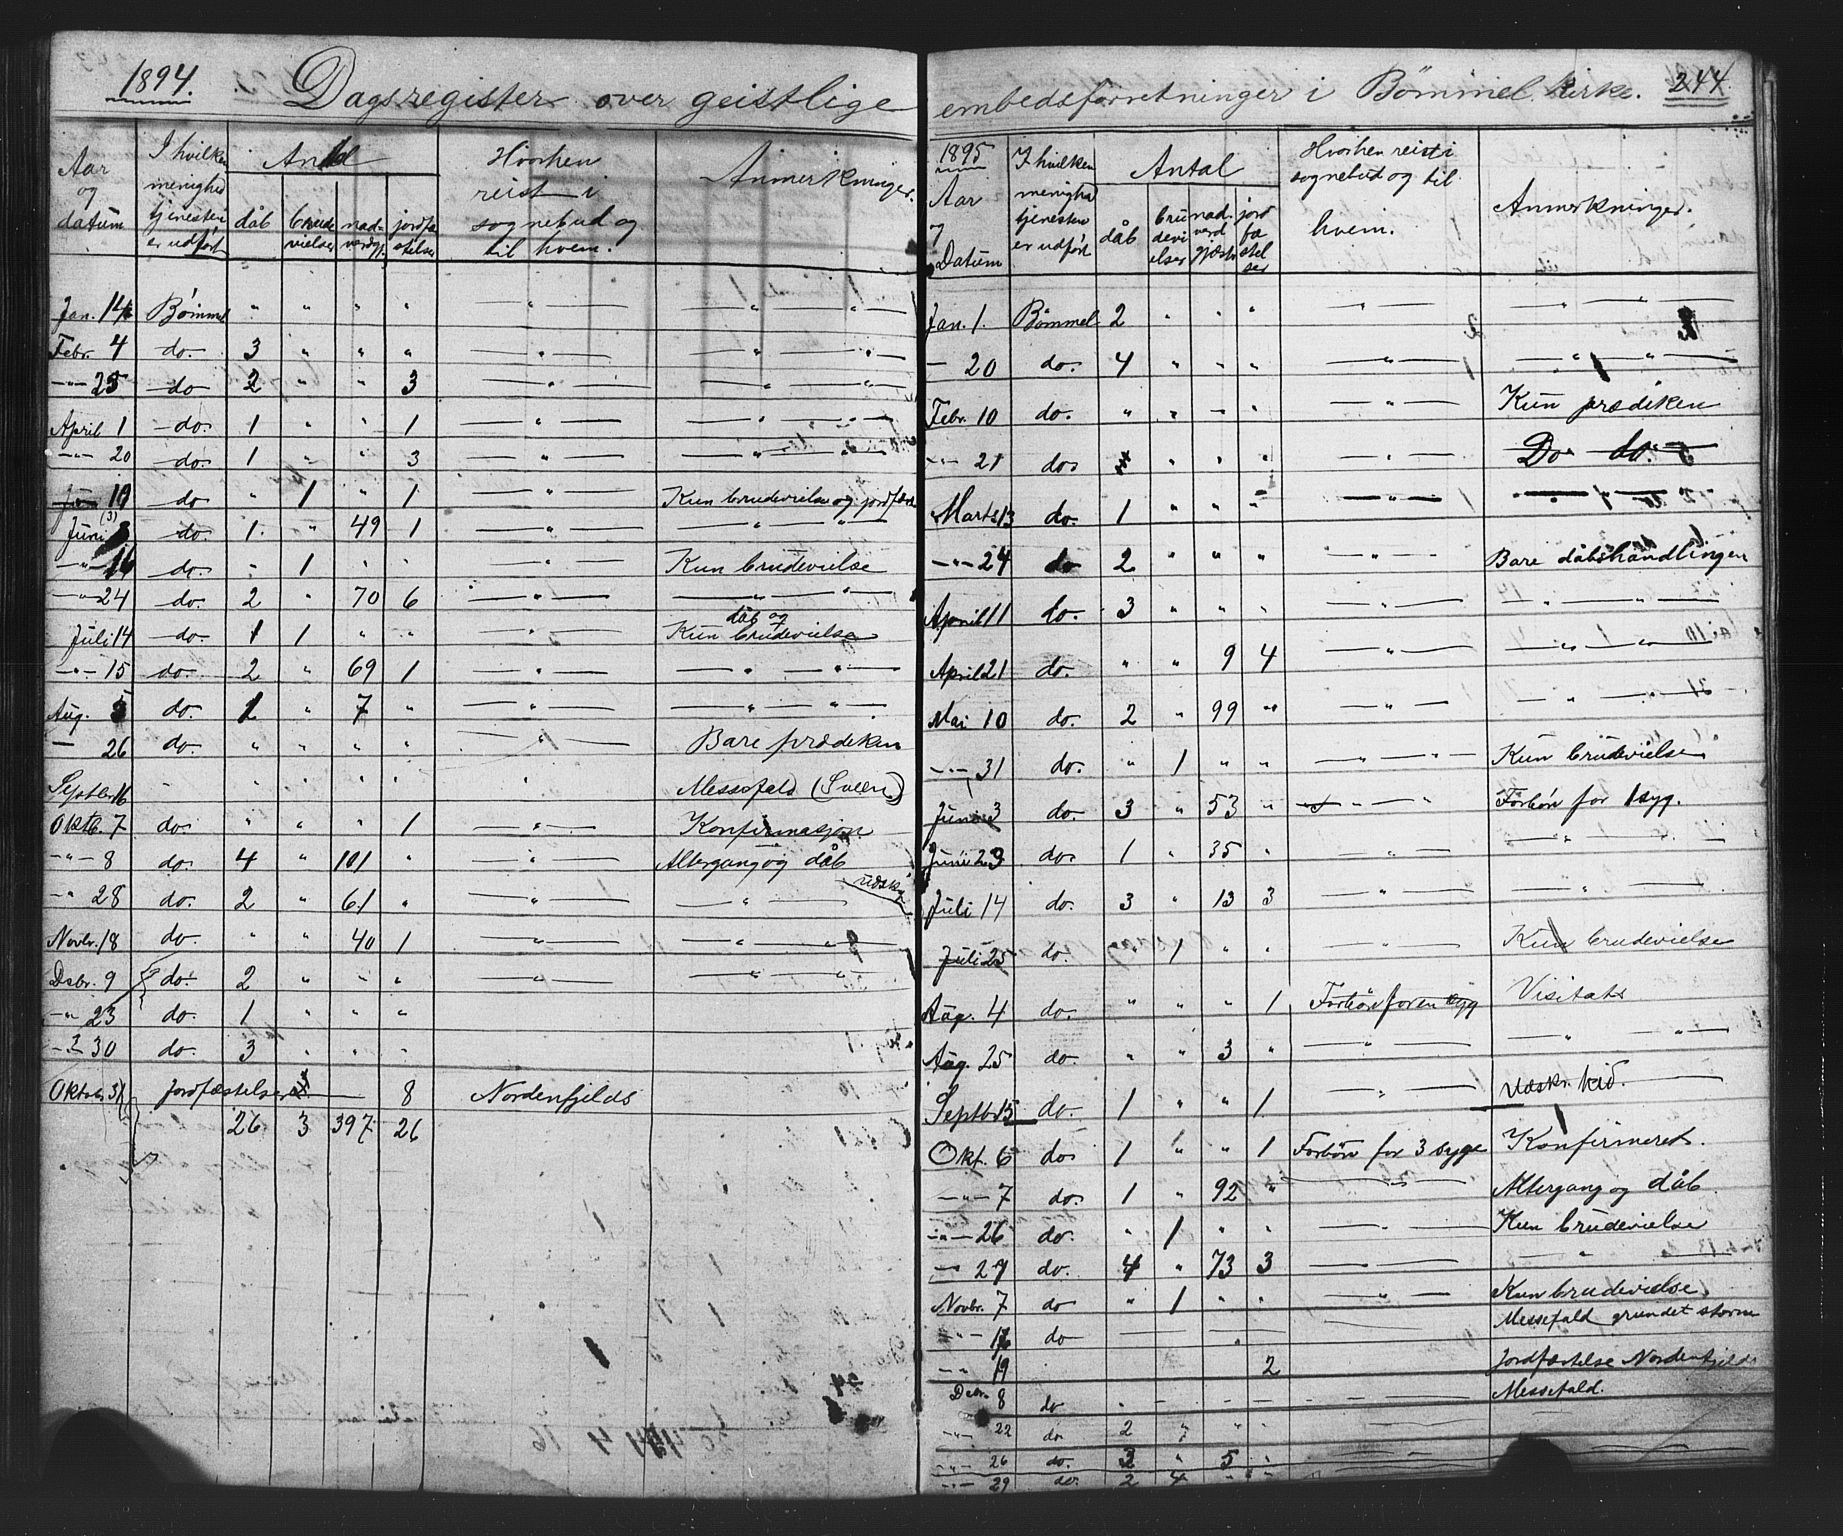 1894.
Dagsregister over geistlige
Aar og datum | I hvilken menighed tjenesten er udført | Antal | dåb | brudevielser | nadverdgj. | jordfæstelser | Hvorhen reist i sognebud og til hvem. | Anmerkninger.
Jan. 14 Bømmel " " " " — " — — " —
Febr. 4 do. 3 " " " — " — — " — " —
— " — 25 do 2 " " 3 — " — — " — " —
April 1 do. 1 " " 1 — " — — " — " —
— " — 20 do. 1 " " 3 — " — — " — " —
10 do " 1 " 1 — " — Kun brudevielse og jordfæst
(3)
Juni 3 do. 1. " 49 1 — " — — " — " —
— " — 16 do. " 1 " " Kun brudevielse
— " — 24 do. 2 " 70 6 — " — — " — " —
Juli 14 do. 1 1 " " — " — Kun dåb og brudevielse
— " — 15 do. 2 " 69 1 — " — " — " —
Aug. 5 do. 1 " 7 " — " — — " — " —
— 26 do. " " " " — " — Bare prædiken
Septbr 16 - " " " " " Messefald (Sveen)
Oktb. 7 do. " " " 1 — " — Konfirmasjon
— " — 8 do. 4 " 101 " — " — Altergang og dåb
— " 28 do. 2 " 61 " — " — — " — udskr
Novbr. 18 do. " " 40 1 — " — — " — " —
Dsbr. 9 do. 2 " " " — " — — " — " —
— " 23 do. 1 " " "
— " 30 do. 3 " " "
Oktober 31 Jordfæstelser — 8 Nordenfjelds
26 3 397 26
embedsforretninger i Bømmel Kirke. 244
1895
Aar og Datum | I hvilken menighed tjenesten er udført | Antal | dåb | brudevielser | nadverdgjæster | jordfæstelser | Hvorhen reist i sognebud og til hvem. | Anmerkninger.
Jan. 1. Bømmel 2 " " " — " — — " — " —
— 20 do. 4 " " " — " — — " — " —
Febr. 10 do. " " " " — " — Kun prædiken
— " — 21 do. " " " — " — Do do.
Marts 13 do. 1 " " " — " —
— " — 24 do 2 " " " — " — Bare dåbshandlingen
April 11 do. 3 " " " — " — — " — " —
April 21 do. " " 9 4 — " — — " — " —
Mai 10 do. 2 " 99 " — " — — " — " —
— " — 31 do. " 1 " " — " — " Kun brudevielse
Juni 3 do. 3 " 53 " — " — " Forbøn for 1 syg.
Juni 23 do. 1 " 35 " — " —
Juli 14 do. 3 " 13 3 — " — — " — " —
Juli 25 do. " 1 " " — " — Kun brudevielse
Aug. 4 do. " " " 1 Forbøn for en syg Visitats
Aug. 25 do. " " 3 " — " — — " — " —
Septbr 15 do. 1 " " 1 — " — Udskr. hid.
Okt. 6 do. 1 " " 1 Forbøn for 3 syge Konfirmeret.
— " — 7 do. 1 " 92 " — " — Altergang og dåb
— " — 26 do. " 1 " " — " — Kun brudevielse
— " 27 do. 4 " 73 3 — — " —
Novbr. 7 do " 1 " " — " — Kun brudevielse
— " — do — — — — Messefald grundet storm
— " 19 2 Jordfæstelse Nordenfjelds
Dsbr. 8 do - - - - Messefald.
— " — 22 do 2 " " "
— " — 26 do. " 5 "
— " — 29 do. 2 4 " "